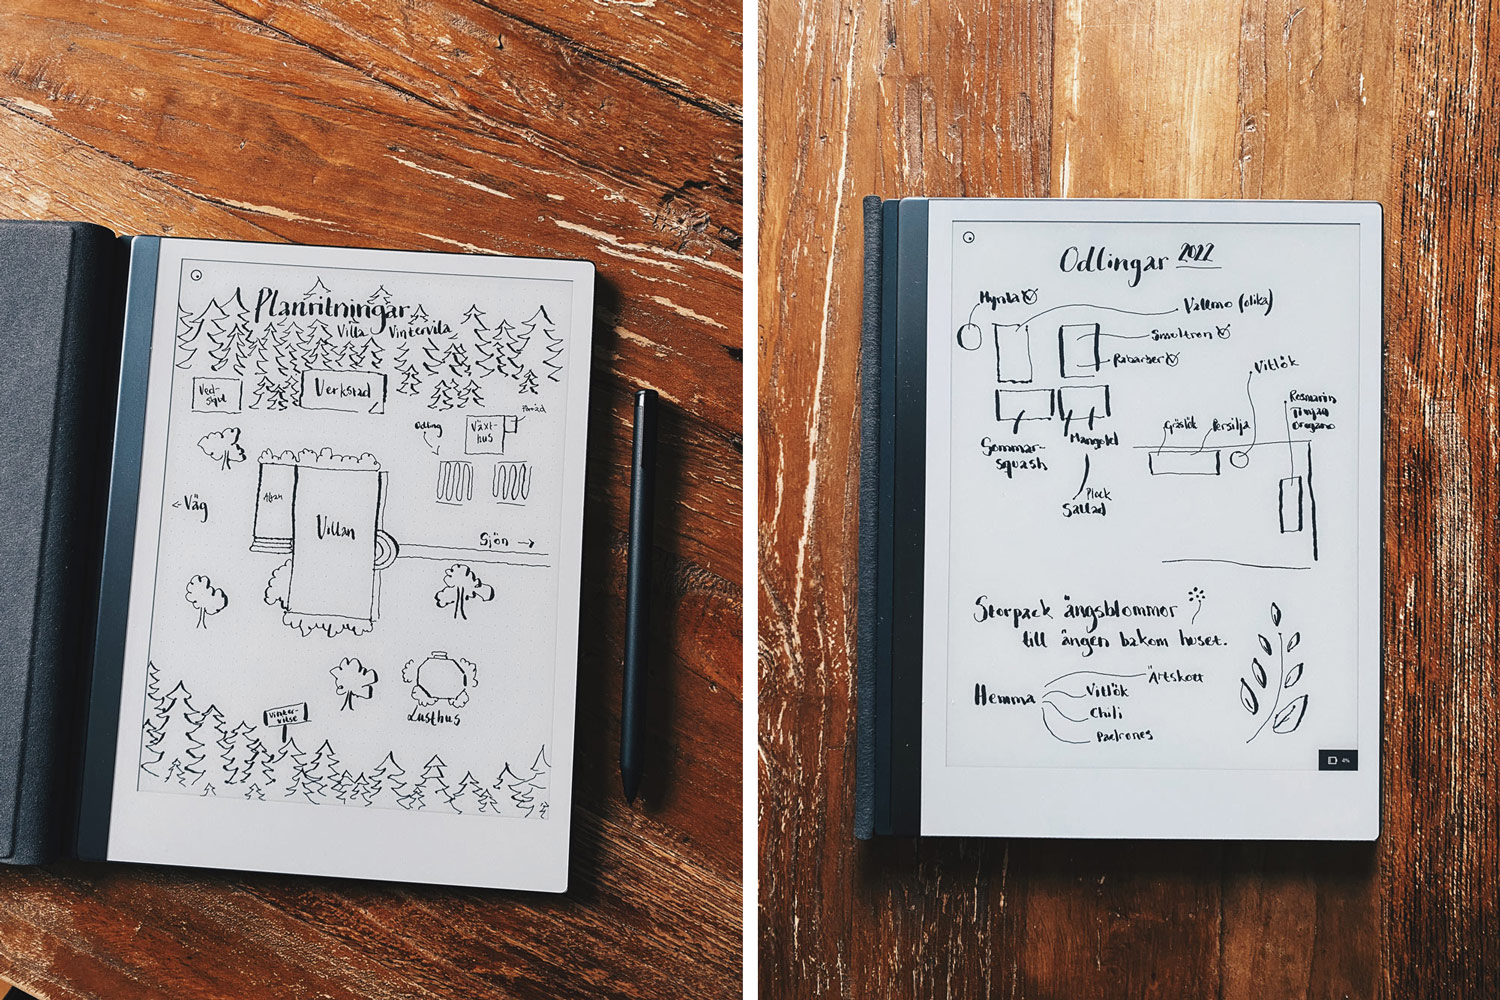 Planritningar
Villa Vintervila
Ved-
Verkstad
Växt-
hus
Odling
Altan
Villan
← Väg
Sjön →
Vinter-
Lusthus
Odlingar 2022
Mynta
Vallmo (olika)
Smultron
Rabarber
Vitlök
Rosmarin
Timjan
Oregano
Gräslök
Persilja
Sommar-
squash
Mangold
Plock
Sallad
Storpack ängsblommor
till ängen bakom huset.
Hemma
Ärtskott
Vitlök
Chili
Padrones
4%